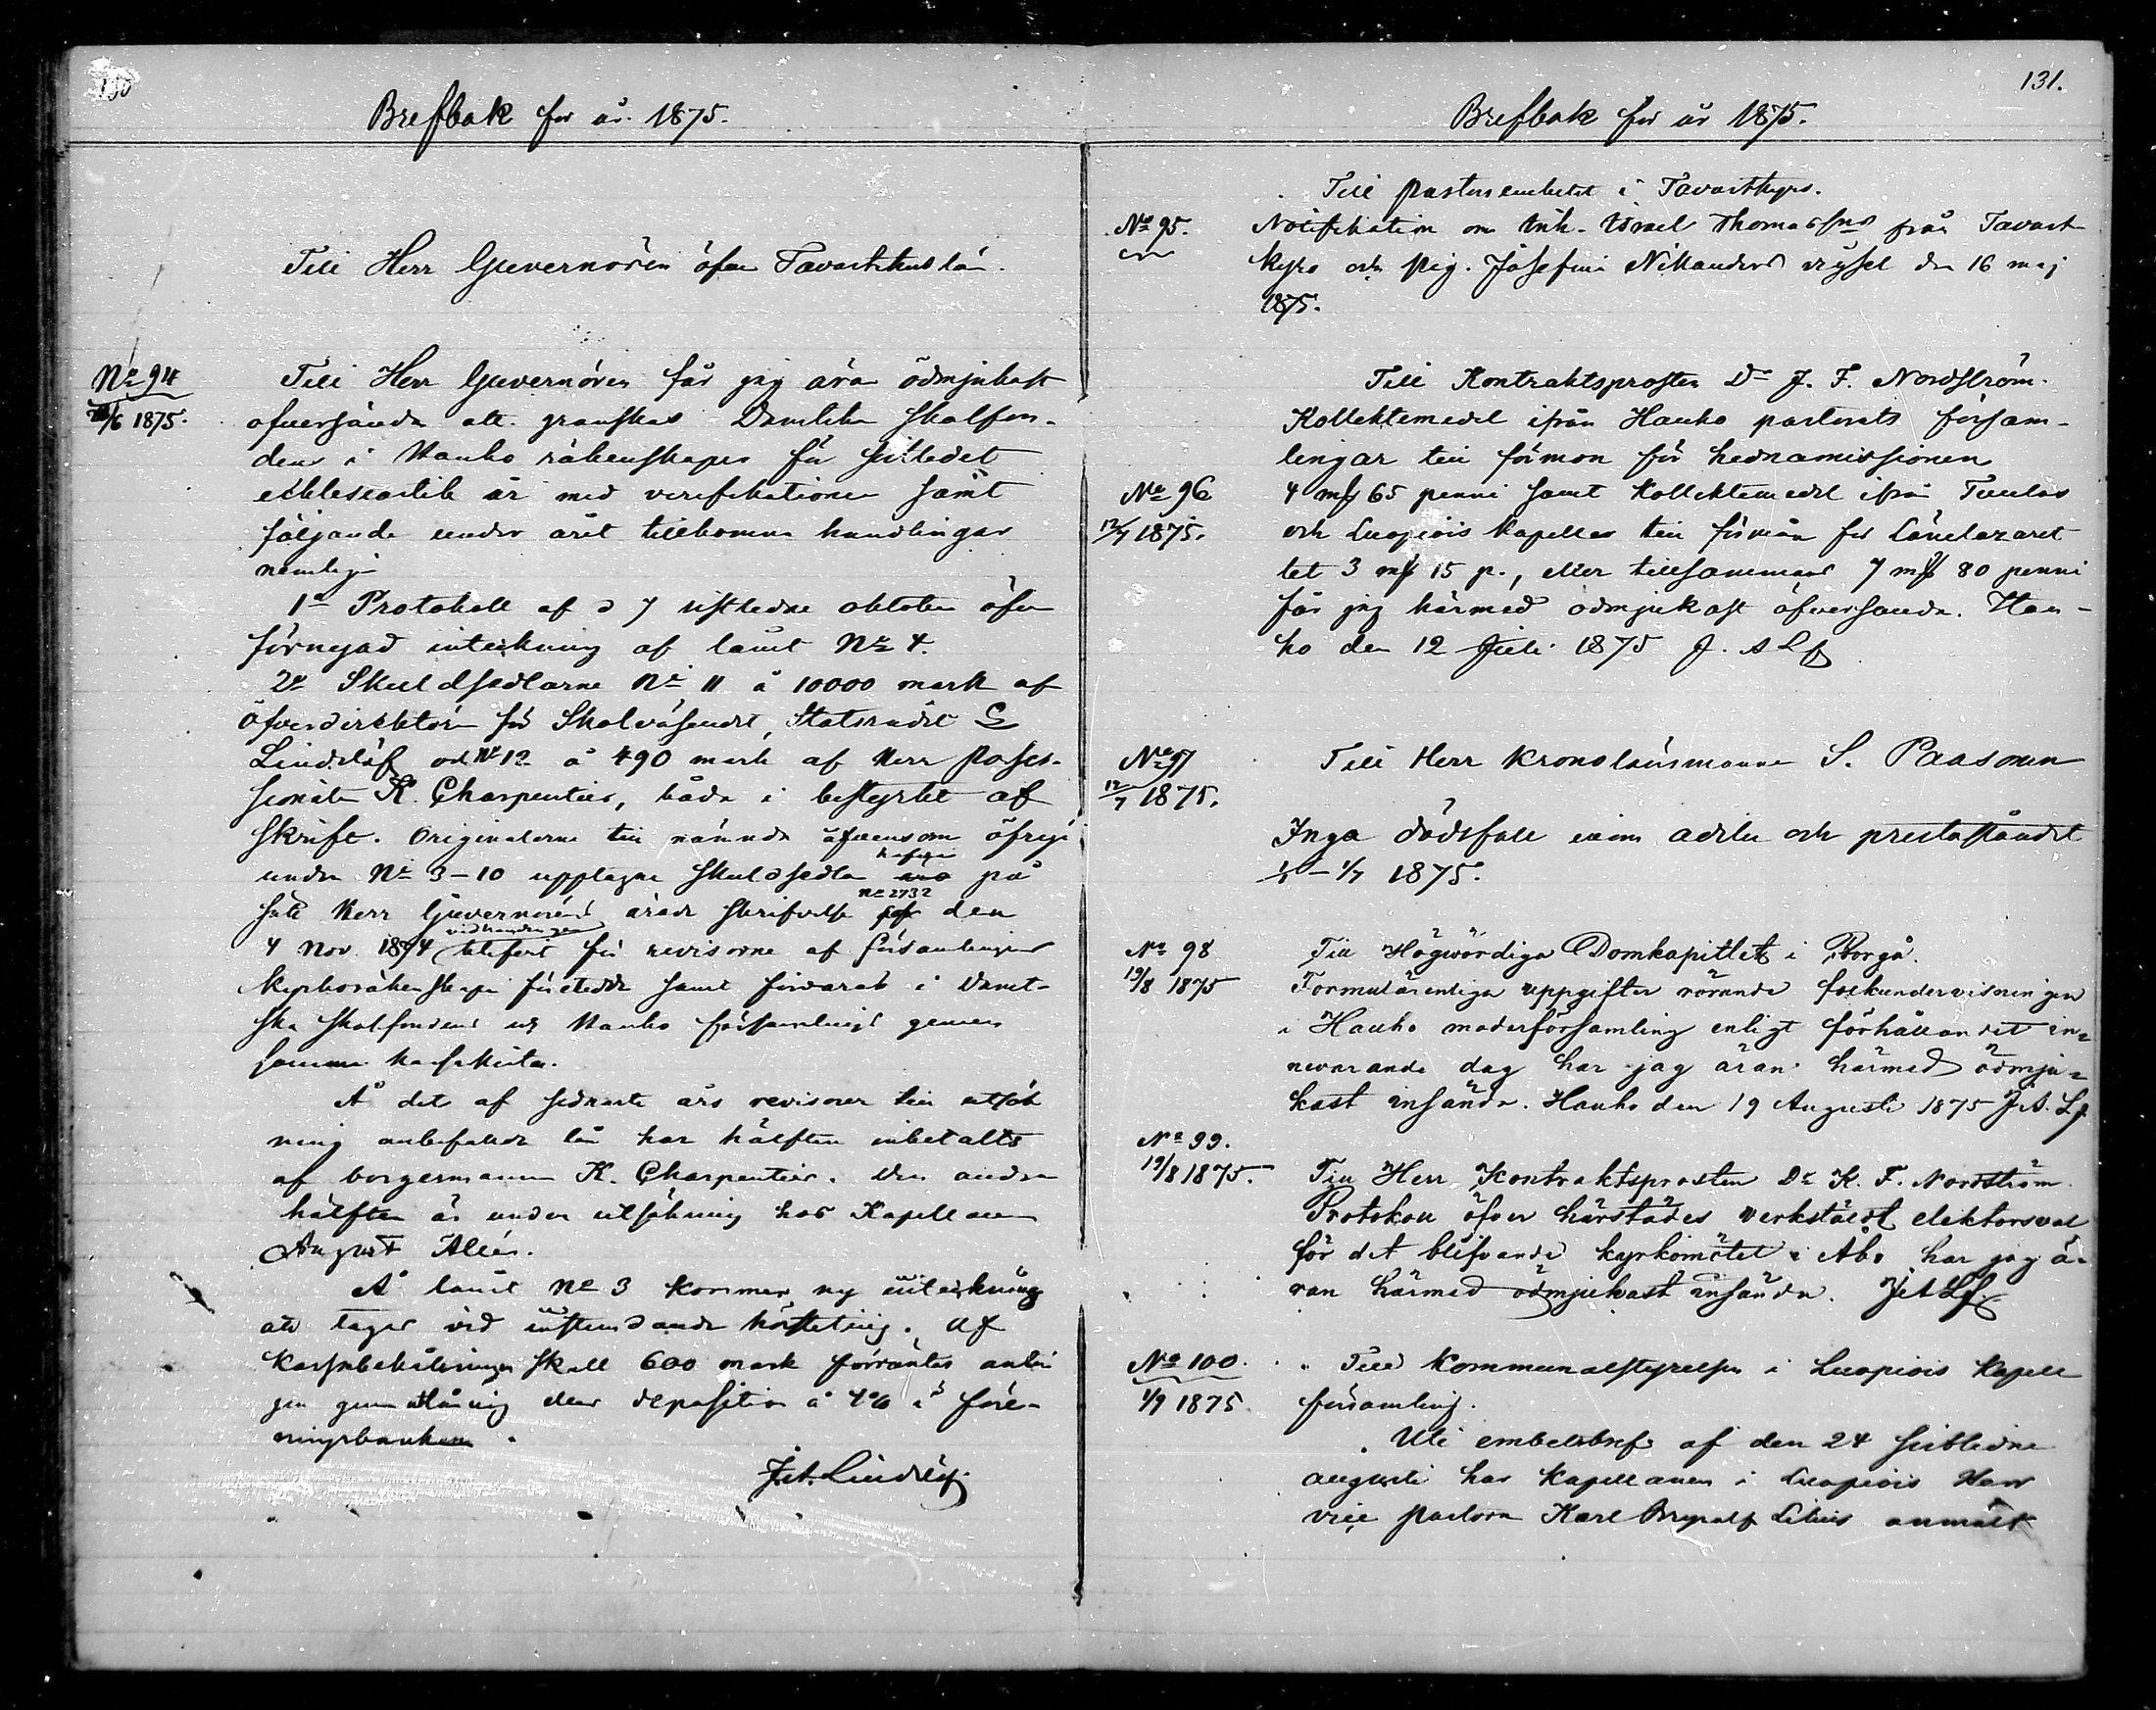 130
Brefbok för år 1875.
Till Herr Guvernören öfver Tavastehus län.
No 94
/6 1875.
Till Herr Guvernören får jag äran ödmjukast
öfversända att granskas Damlska skolfon-
dens i Hauho räkenskaper för sistledet
ecklesiastik år med verifikationer samt
följande under året tillkomna handlingar
nemligen
1o Protokoll af d 7 sistledne oktober öfver
förnyad inteckning af lånet No 4.
2o Skuldsedlarne No 11 à 10000 mark af
öfverdirektören för Skolväsendet, Statsrådet
Lindelöf och No 12 à 490 mark af Herr posses-
sionaten K. Charpentier, båda i bestyrkt af
skrift. Originalerne till nämnda äfvensom öfriga
under No 3-10 upptagna skuldsedlar hafva på
No 2732
Herr Guvernörens ärade skrifvelse den
4 Nov. 1874 vidhandengen blifvit för revisorne af församlingens
kyrkoräkenskaper företedda samt förvaras i Daml-
ska skolfondens och Hauho församlings gemen
samma kassakista.
Å det af sednaste års revisorer till utsök
ning anbefallda lån har hälften inbetalts
af borgesmannen K. Charpentier. Den andra
hälften är under utsökning hos Kapellanen
August Allén.
Å lånet No 3 kommer ny inteckning
att tagas vid instundande hösteting. Af
kassabehållningen skall 600 mark förräntas antin
gen genom utlåning eller deposition à 4% i före-
ningsbanken.
J. A. Lindelöf.
131.
Brefbok för år 1875.
Till pastorsembetet i Tavastkyro.
No 95.
Notifikation om Inh. Israel Thomasson från Tavast
kyro och pig. Josefina Nikanders vigsel den 16 maj
1875.
Till Kontraktsprosten Dr J. F. Nordström.
Kollektmedel ifrån Hauho pastorats försam-
lingar till förmon för hednamissionen
No 96
12/7 1875.
4 mk 65 penni samt kollektemedel ifrån Tuulos
och Luopiois kapeller till förmån för Länelazaret
tet 3 mk 15 p., eller tillsammans 7 mk 80 penni
får jag härmed ödmjukast öfversända. Hau-
ho den 12 Juli 1875 J. A Lf
No 97
12/7 1875.
Till Herr Kronolänsmannen S. Paasonen
Inga dödsfall inom adeln och prestaståndet
1/ - 1/7 1875.
No 98
19/8 1875
Till Högwördiga Domkapitlet i Borgå.
Formulärenliga uppgifter rörande folkundervisningen
i Hauho moderförsamling enligt förhållandet in-
nevarande dag har jag äran härmed ödmju-
kast insända. Hauho den 19 Augusti 1875 J A. Lf.
No 99.
19/8 1875.
Till Herr Kontraktsprosten Dr K. F. Nordström.
Protokoll öfver härstädes verkstäldt elektorsval
för det blifvande kyrkomötet i Åbo har jag ä-
ran härmed ödmjukast insända. J A Lf.
No 100.
1/9 1875.
Till Kommunalstyrelsen i Luopiois Kapell
församling.
Uti embetsbref af den 24 sistledne
augusti har kapellanen i Luopiois Herr
vice pastorn Karl Lilius anmält